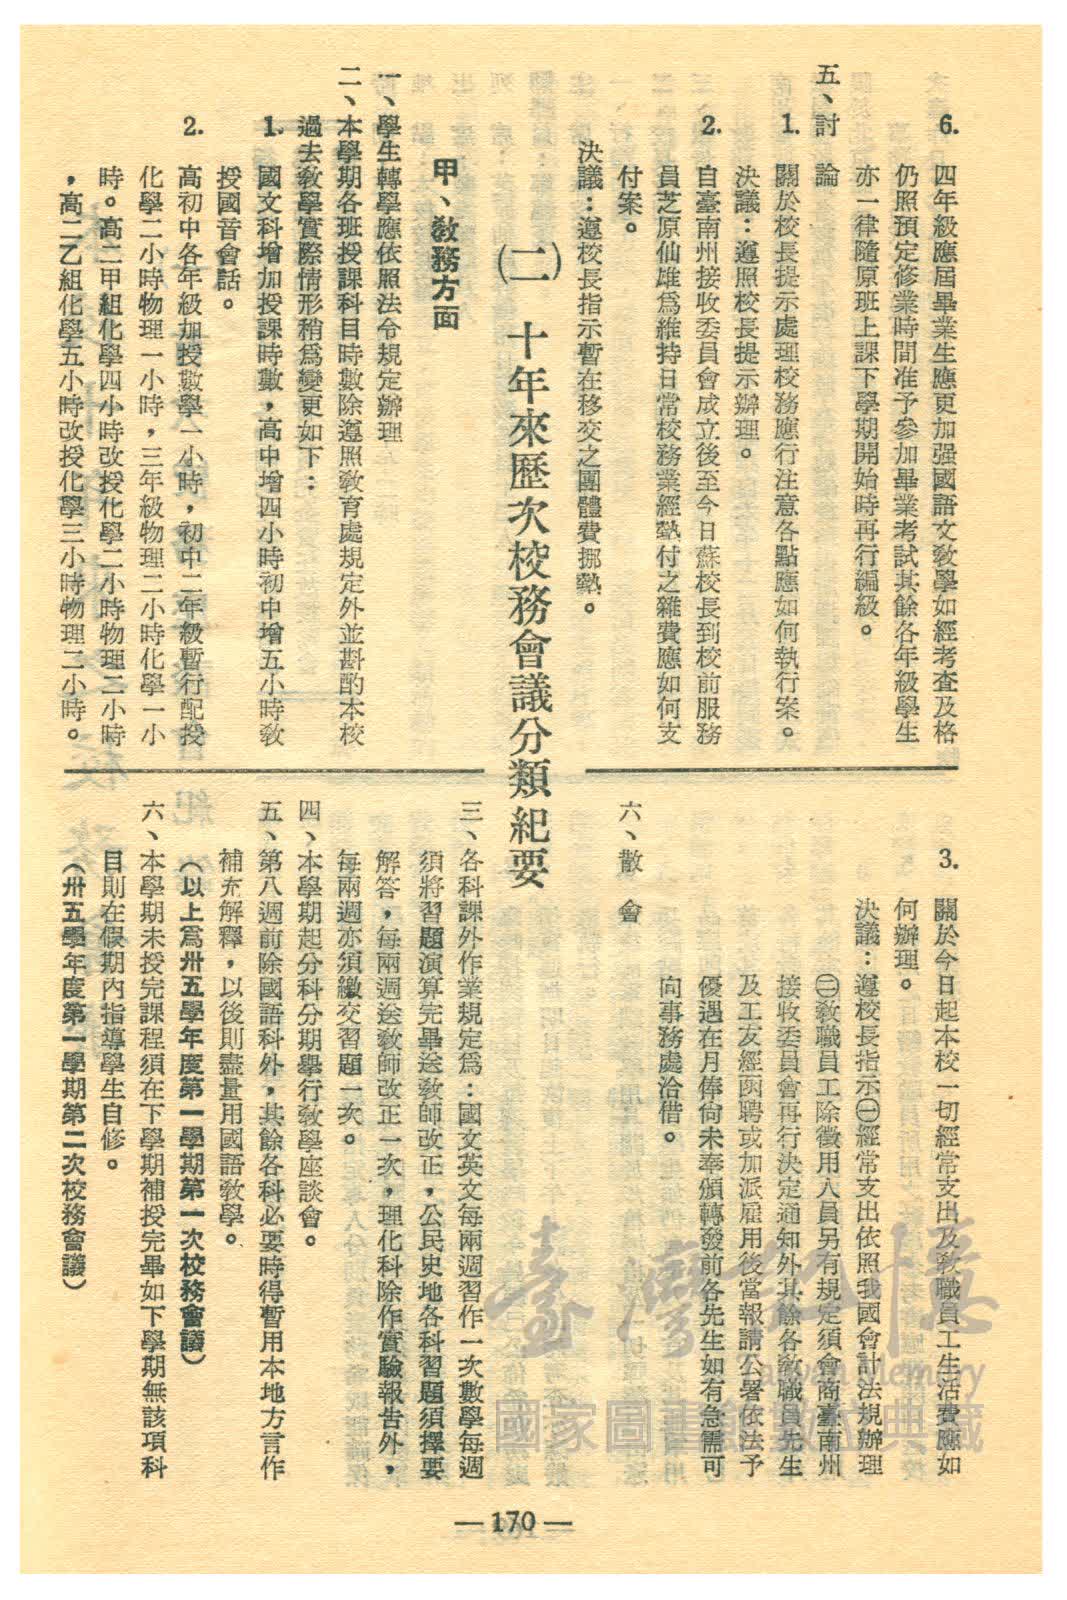 6. 四年級應屆畢業生應更加强國語文敎學如經考査及格
仍照預定修業時間准予參加畢業考試其餘各年級學生
亦一律隨原班上課下學期開始時再行編級。
五、討　論
1. 關於校長提示處理校務應行注意各點應如何執行案。
決議：遵照校長提示辦理。
2. 自臺南州接收委員會成立後至今日蘇校長到校前服務
員芝原仙雄爲維持日常校務業經墊付之雜費應如何支
付案。
決議：遵校長指示暫在移交之團體費挪墊。
3. 關於今日起本校一切經常支出及敎職員工生活費應如
何辦理。
決議：遵校長指示㊀經常支出依照我國會計法規辦理
㊁敎職員工除徵用人員另有規定須會商臺南州
接收委員會再行決定通知外其餘各敎職員先生
及工友經函聘或加派雇用後當報請公署依法予
優遇在月俸尙未奉頒轉發前各先生如有急需可
向事務處洽借。
六、散　會
㈡　十年來歷次校務會議分類紀要
甲、敎務方面
一、學生轉學應依照法令規定辦理
二、本學期各班授課科目時數除遵照敎育處規定外並斟酌本校
過去敎學實際情形稍爲變更如下：
1. 國文科增加授課時數，高中增四小時初中增五小時敎
授國音會話。
2. 高初中各年級加授數學一小時，初中二年級暫行配授
化學二小時物理一小時，三年級物理二小時化學一小
時。高二甲組化學四小時改授化學二小時物理二小時
，高二乙組化學五小時改授化學三小時物理二小時。
三、各科課外作業規定爲：國文英文每兩週習作一次數學每週
須將習題演算完畢送敎師改正，公民史地各科習題須擇要
解答，每兩週送敎師改正一次，理化科除作實驗報告外，
每兩週亦須繳交習題一次。
四、本學期起分科分期舉行敎學座談會。
五、第八週前除國語科外，其餘各科必要時得暫用本地方言作
補充解釋，以後則盡量用國語敎學。
（以上爲卅五學年度第一學期第一次校務會議）
六、本學期未授完課程須在下學期補授完畢如下學期無該項科
目則在假期內指導學生自修。
（卅五學年度第一學期第二次校務會議）
—170—
臺灣記憶
Taiwan Memory
國家圖書館數位典藏